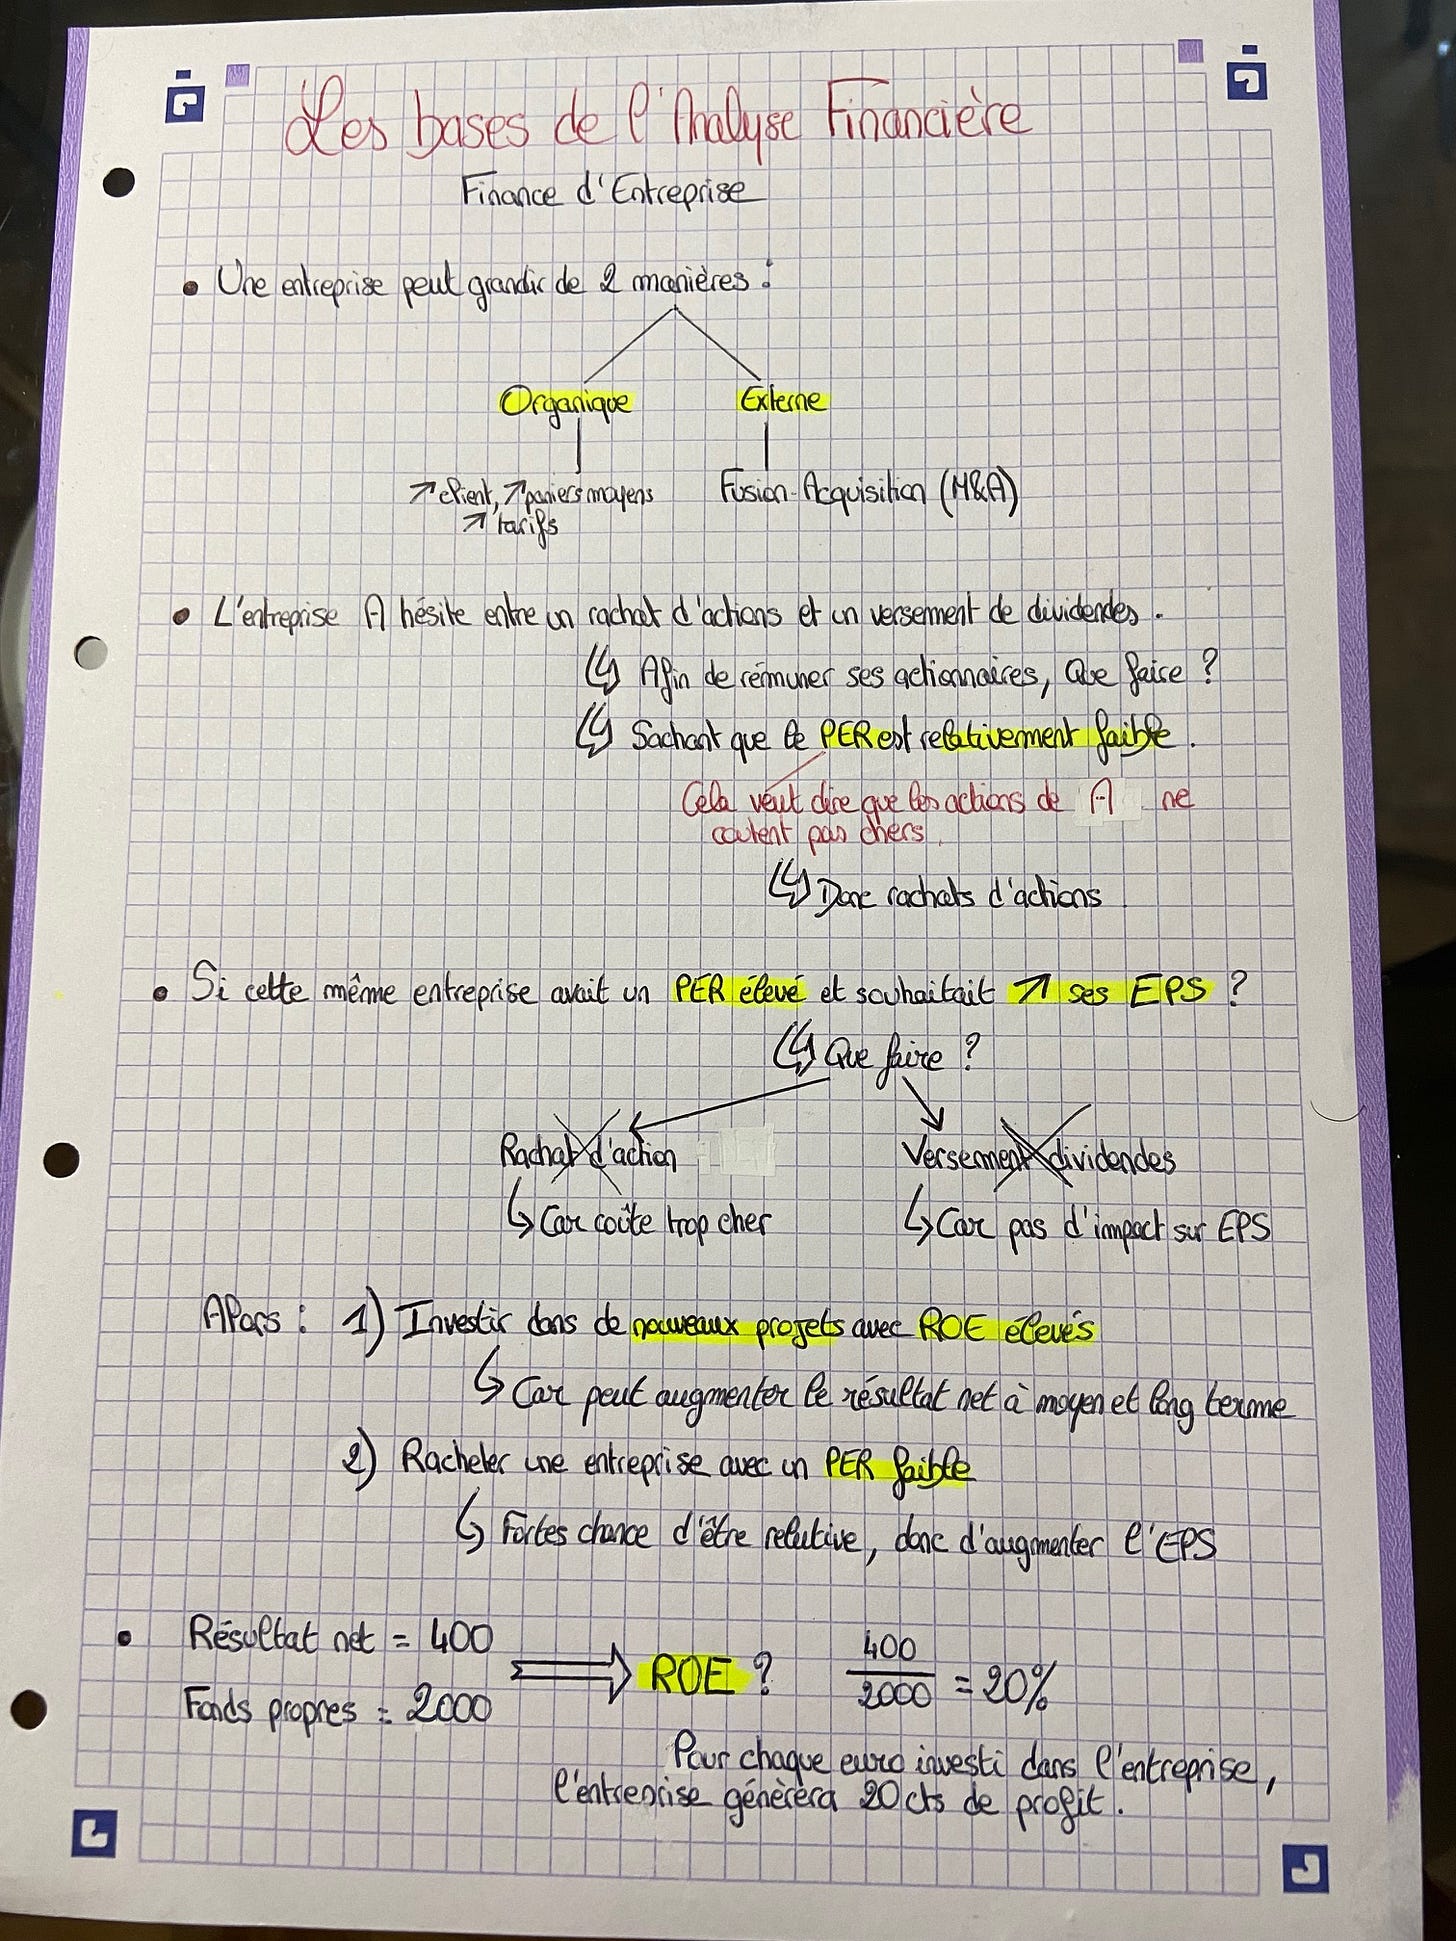 Les bases de l'Analyse Financière
Finance d'Entreprise
• Une entreprise peut grandir de 2 manières :
Organique Externe
↗ client, ↗ paniers moyens Fusion-Acquisition (M&A)
↗ tarifs
• L'entreprise A hésite entre un rachat d'actions et un versement de dividendes.
↳ Afin de rémuner ses actionnaires, Que faire ?
↳ Sachant que le PER est relativement faible.
Cela veut dire que les actions de A ne
coutent pas chers.
↳ Donc rachats d'actions
• Si cette même entreprise avait un PER élevé et souhaitait ↗ ses EPS ?
↳ Que faire ?
Rachat d'action Versement dividendes
↳ Car coûte trop cher ↳ Car pas d'impact sur EPS
Alors : 1) Investir dans de nouveaux projets avec ROE élevés
↳ Car peut augmenter le résultat net à moyen et long terme
2) Racheter une entreprise avec un PER faible
↳ Fortes chance d'être relutive, donc d'augmenter l'EPS
• Résultat net = 400
Fonds propres = 2000
⟹ ROE ? 400/2000 = 20%
Pour chaque euro investi dans l'entreprise,
l'entreprise génèrera 20 cts de profit.